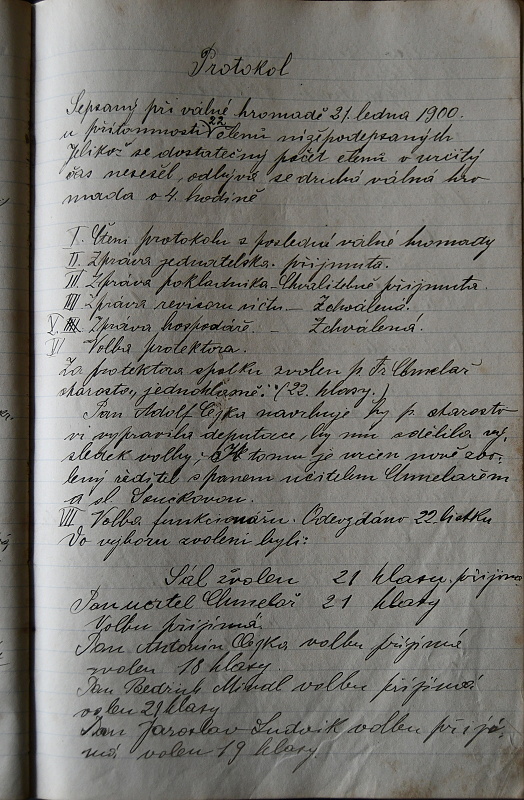 Protokol
Sepsaný při válné hromadě 21. ledna 1900.
u přítomnosti 22 členů nížepodepsaných
Jelikož se dostatečný počet členů v určitý
čas nesešel, odbývá se druhá válná hro
mada o 4. hodině
I. Čtení protokolu z poslední válné hromady
II. Zpráva jednatelská. přijmuta.
III. Zpráva pokladníka - Chvalitebně přijmuta.
IIII Zpráva revisorů účtu. - Schválená.
V. Zpráva hospodáře. - Schválená.
VI Volba protektora.
Za protektora spolku zvolen p. Fr. Chmelař
starosta, jednohlasně. (22. hlasy.)
Pan Adolf Cejka navrhuje by p. starosto
vi vypravila deputace, by mu sdělila vý
sledek volby. K tomu je určen nově zvo
lený ředitel s panem učitelem Chmelařem
a sl. Součkovou.
VII Volba funkcionářů. Odevzdáno 22. lístků
Do výboru zvoleni byli:
Sál zvolen 21 hlasy.
Pan učitel Chmelař 21 hlasy
Volbu přijímá.
Pan Antonín Cejka volbu přijímá
zvolen 18 hlasy.
Pan Bedřich Mindl volbu přijímá
volen 21 hlasy
Pan Jaroslav Ludvik volbu přijí-
má volen 19 hlasy.